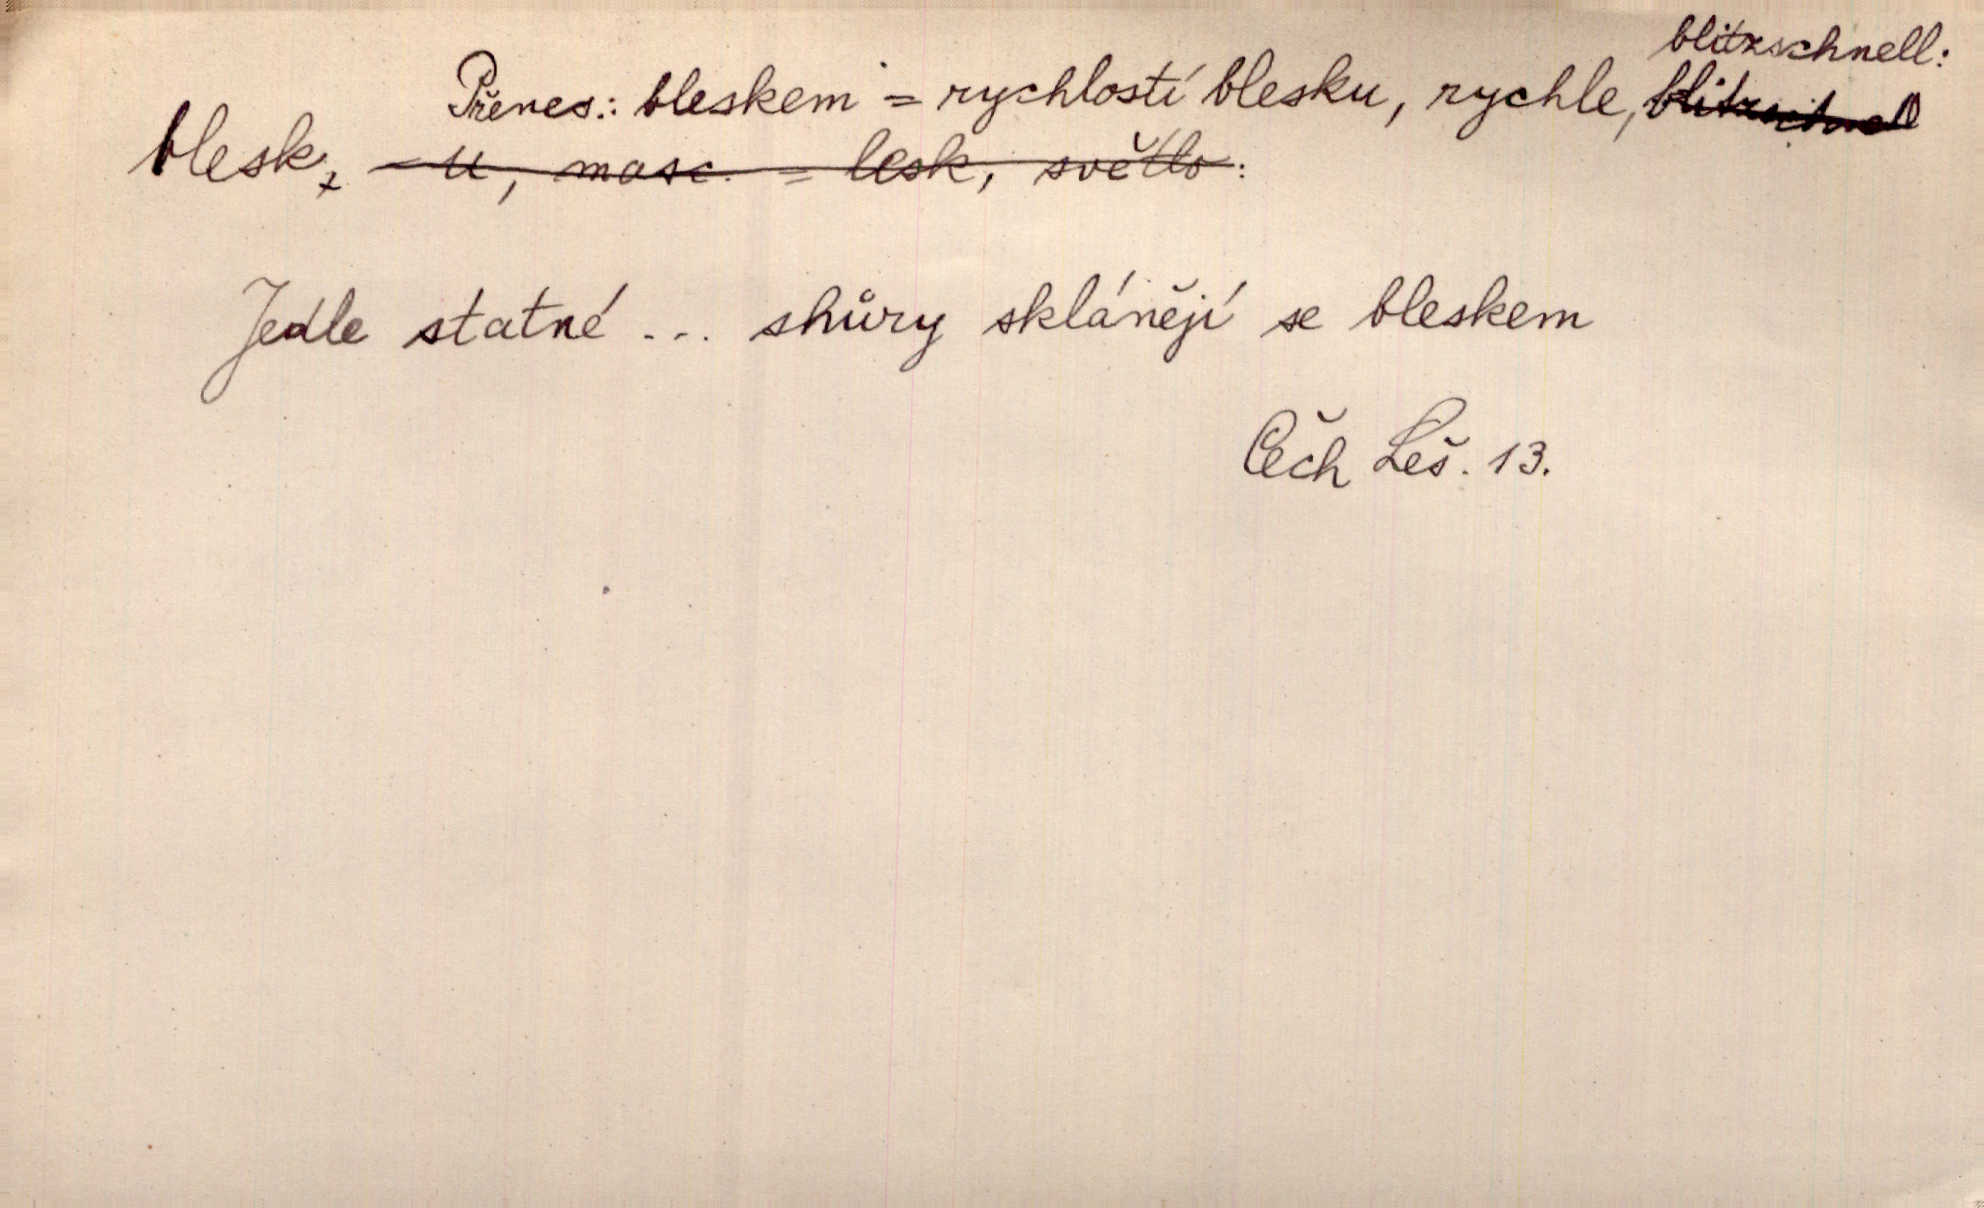 blitzschnell:
Přenes.: bleskem = rychlostí blesku, rychle, blitzschnell
blesk, -u, masc. = lesk, světlo:
Jedle statné ... shůry sklánějí se bleskem
Čech Leš. 13.